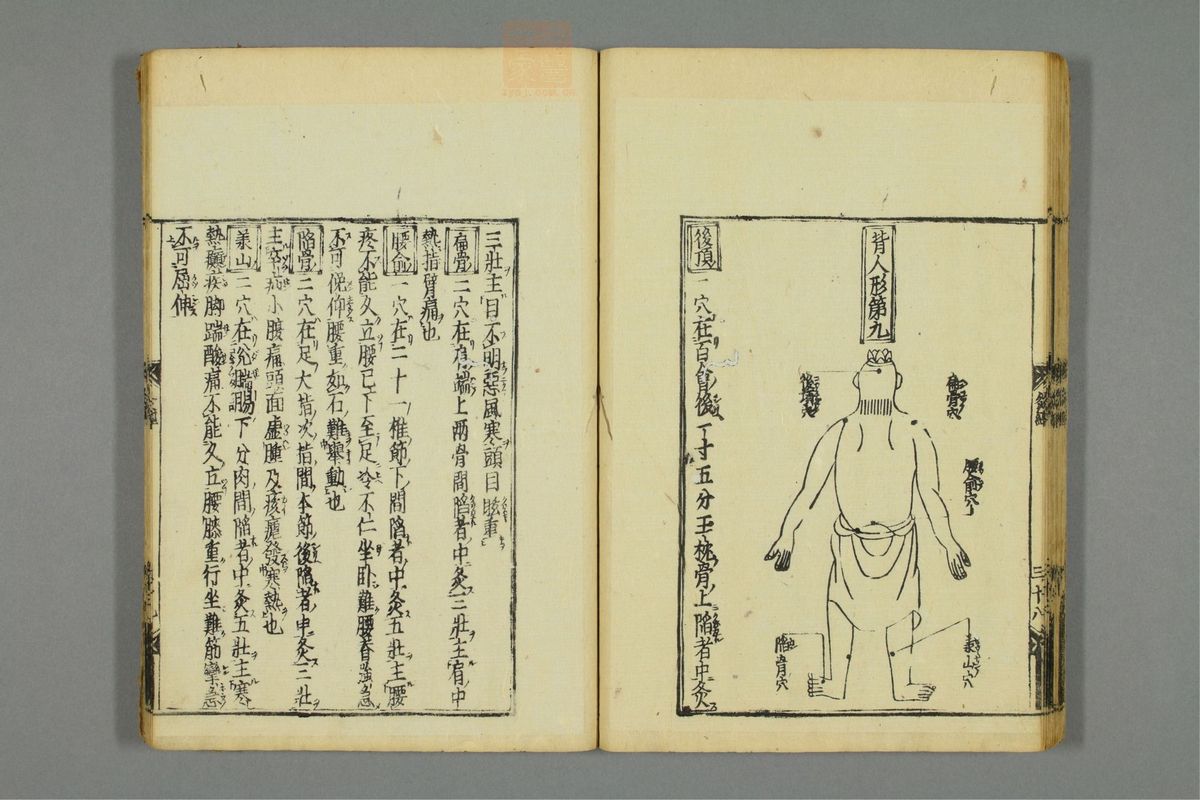 背人形第九
後頂穴
腰俞穴
陷骨穴
後頂 一穴在百會後一寸五分玉枕骨上陷者中灸
三十八
三壯主目不明惡風寒頭目眩重
扁骨 二穴在肩端上兩骨間陷者中灸三壯主肩中
熱指臂痛也
腰俞 一穴在二十一椎節下間陷者中灸五壯主腰
疼不能久立腰已下至足冷不仁坐卧難腰脊強急
不可俛仰腰重如石難舉動也
陷骨 二穴在足大指次指間本節後陷者中灸三壯
主卒疝小腹痛頭面虛腫及痎瘧發寒熱也
承山 二穴在兊腨腸下分肉間陷者中灸五壯主寒
熱癲疾脚踹酸痛不能久立腰膝重行坐難筋攣急
不可屈伸